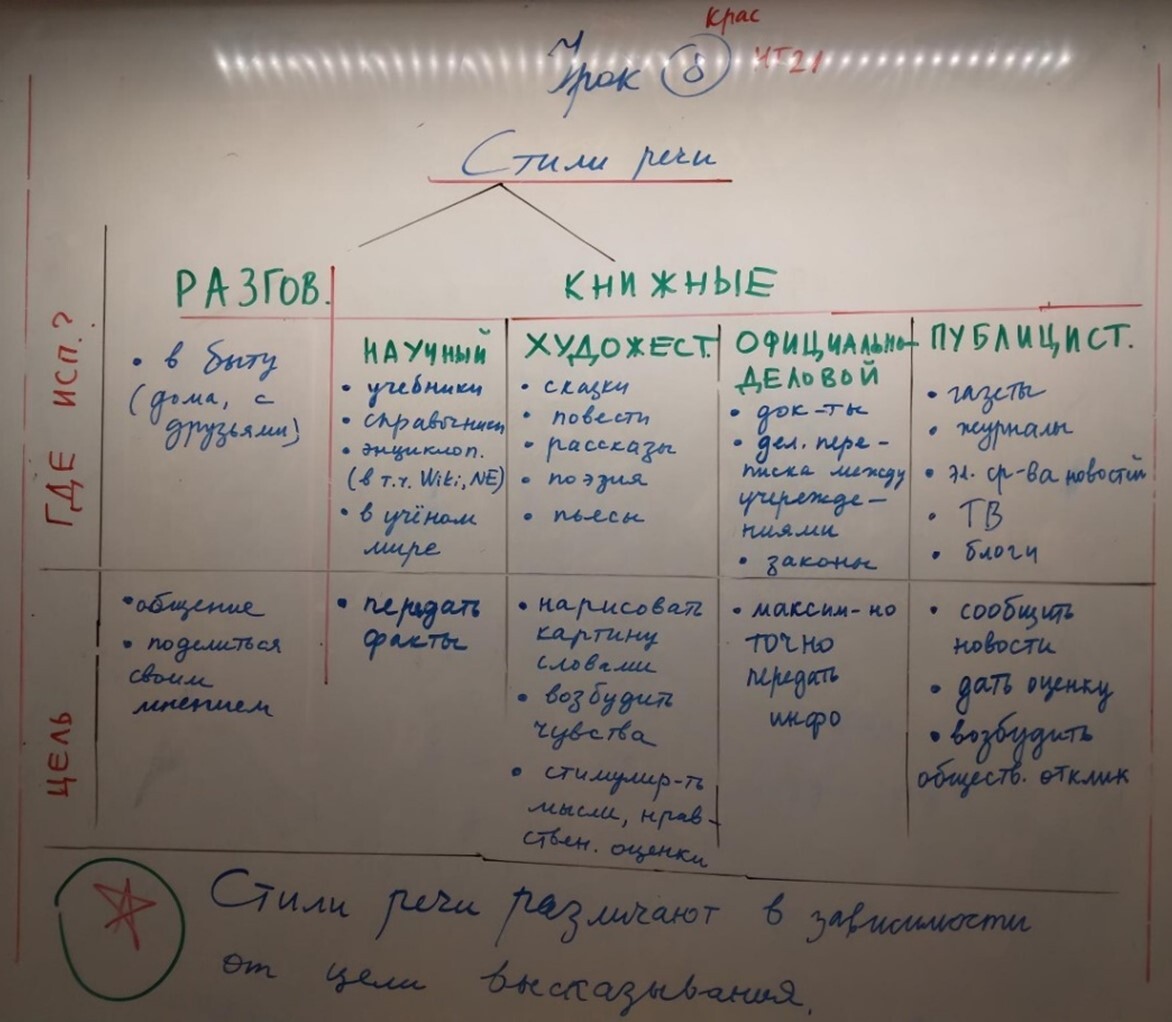 Крас
Урок 8 ЧТ21
Стили речи
РАЗГОВ.
КНИЖНЫЕ
ГДЕ ИСП.?
• в быту
(дома, с
друзьями)
НАУЧНЫЙ
• учебники
• справочники
• энциклоп.
(в т.ч. Wiki, NE)
• в учёном
мире
ХУДОЖЕСТ.
• сказки
• повести
• рассказы
• поэзия
• пьесы
ОФИЦИАЛЬНО-
ДЕЛОВОЙ
• док-ты
• дел. пере-
писка между
учрежде-
ниями
• законы
ПУБЛИЦИСТ.
• газеты
• журналы
• эл. ср-ва новостей
• ТВ
• блоги
ЦЕЛЬ
• общение
• поделиться
своим
мнением
• передать
факты
• нарисовать
картину
словами
• возбудить
чувства
• стимулир-ть
мысли, нрав-
ствен. оценки
• максим-но
точно
передать
инфо
• сообщить
новости
• дать оценку
• возбудить
обществ. отклик
Стили речи различают в зависимости
от цели высказывания.